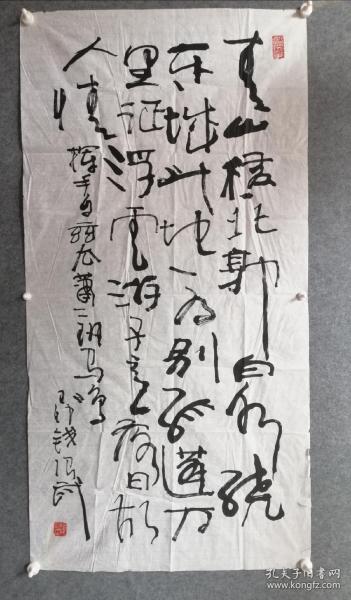 青山横北郭白水绕
东城此地一为别孤蓬万
里征浮云游子意落日故
人情
挥手自兹去萧萧班马鸣
孔夫子旧书网
www.kongfz.com